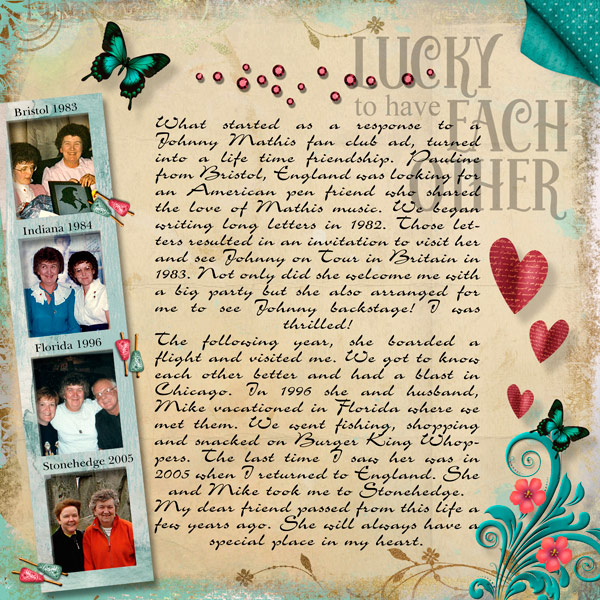 LUCKY
to have
EACH
OTHER
Bristol 1983
Indiana 1984
Florida 1996
Stonehedge 2005
What started as a response to a
Johnny Mathis fan club ad, turned
into a life time friendship. Pauline
from Bristol, England was looking for
an American pen friend who shared
the love of Mathis music. We began
writing long letters in 1982. Those let-
ters resulted in an invitation to visit her
and see Johnny on Tour in Britain in
1983. Not only did she welcome me with
a big party but she also arranged for
me to see Johnny backstage! I was
thrilled!
The following year, she boarded a
flight and visited me. We got to know
each other better and had a blast in
Chicago. In 1996 she and husband,
Mike vacationed in Florida where we
met them. We went fishing, shopping
and snacked on Burger King Whop-
pers. The last time I saw her was in
2005 when I returned to England. She
and Mike took me to Stonehedge.
My dear friend passed from this life a
few years ago. She will always have a
special place in my heart.